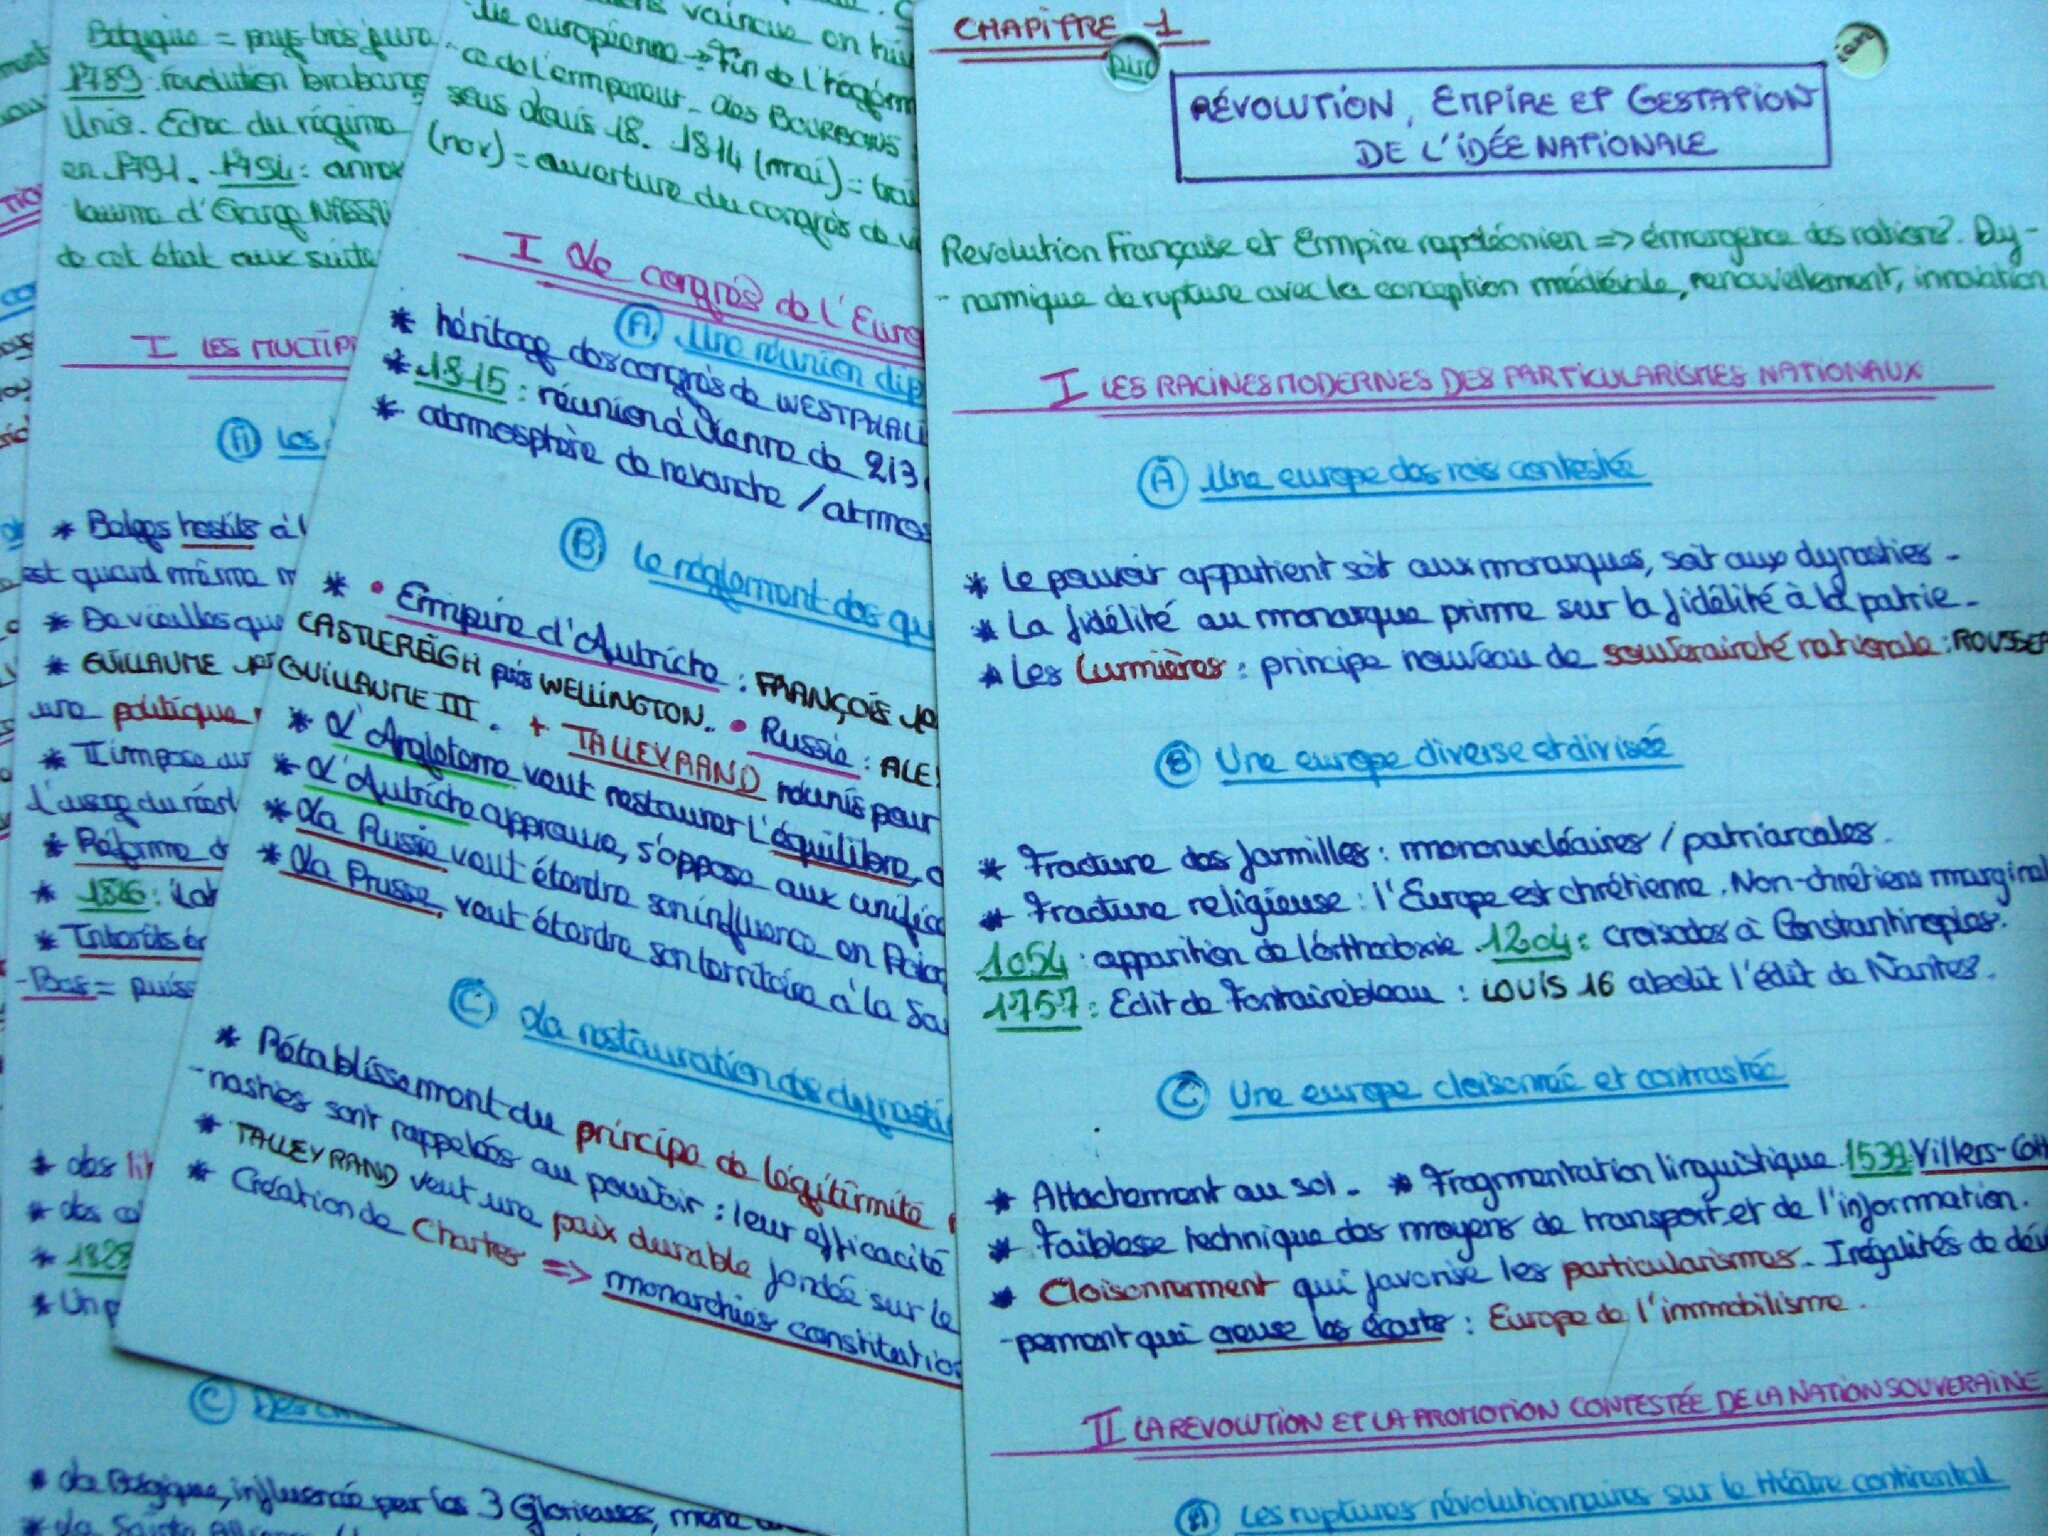 CHAPITRE 1
RÉVOLUTION, EMPIRE ET GESTATION
DE L'IDÉE NATIONALE
Revolution Française et Empire napoléonien => émergence des nations?. Dy-
-namique de rupture avec la conception médiévale, renouvellement, innovation
I LES RACINES MODERNES DES PARTICULARISMES NATIONAUX
A Une europe des rois contestée
* Le pouvoir appartient soit aux monarques, soit aux dynasties.
* La fidélité au monarque prime sur la fidélité à la patrie.
* Les Lumières : principe nouveau de souveraineté nationale : ROUSSEA
B Une europe diverse et divisée
* Fracture des familles : mononucléaires / patriarcales.
* Fracture religieuse : l'Europe est chrétienne. Non-chrétiens marginal
1054 : apparition de l'orthodoxie. 1204 : croisades à Constantinoples.
1757 : Edit de Fontainebleau : LOUIS 16 abolit l'édit de Nantes.
C Une europe cloisonnée et contrastée
* Attachement au sol. * Fragmentation linguistique 1539 Villers-Cott
* Faiblesse technique des moyens de transport et de l'information.
* Cloisonnement qui favorise les particularismes. Inégalités de dév
-pement qui creuse les écarts : Europe de l'immobilisme.
II LA REVOLUTION ET LA PROMOTION CONTESTÉE DE LA NATION SOUVERAINE
A Les ruptures révolutionnaires sur le théâtre continental
vaincue en
européenne -> Fin de l'hégém
ce de l'empereur. des BOURBONS
sous Louis 18. 1814 (mai) =
(nov) = ouverture du congrès de
I Le congrès de l'Euro
A Une réunion dip
* héritage des congrès de WESTPHALI
* 1815 : réunion à Vienne de 213
* atmosphère de revanche / atmos
B Le règlement des qu
* • Empire d'Autriche : FRANÇOIS
CASTLEREIGH puis WELLINGTON. • Russie : ALE
GUILLAUME III. + TALLEYRAND réunis pour
* L'Angleterre veut restaurer l'équilibre,
* L'Autriche approuve, s'oppose aux unific
* La Russie veut étendre son influence en Polog
* La Prusse, veut étendre son territoire à la Sa
C La restauration des dynasti
* Rétablissement du principe de légitimité
-nasties sont rappelées au pouvoir : leur efficacité
* TALLEYRAND veut une paix durable fondée sur le
* Création de Chartes => monarchies constitutio
Belgique = pays très
1789 : révolution brabanç
Unis. Echec du régime
en 1791. 1794 : annex
de cet état aux suite
I LES MULTIP
A Les
* Belges hostils à l
est quand même
* De vieilles que
* GUILLAUME
une politique
* Il impose
l'usage du
* Réforme
* 1826 :
* Intérêts
-Bas =
* des
* des
* 1828
* Un p
C Des
* La Belgique, influencée par les 3 Glorieuses,
* La Sainte